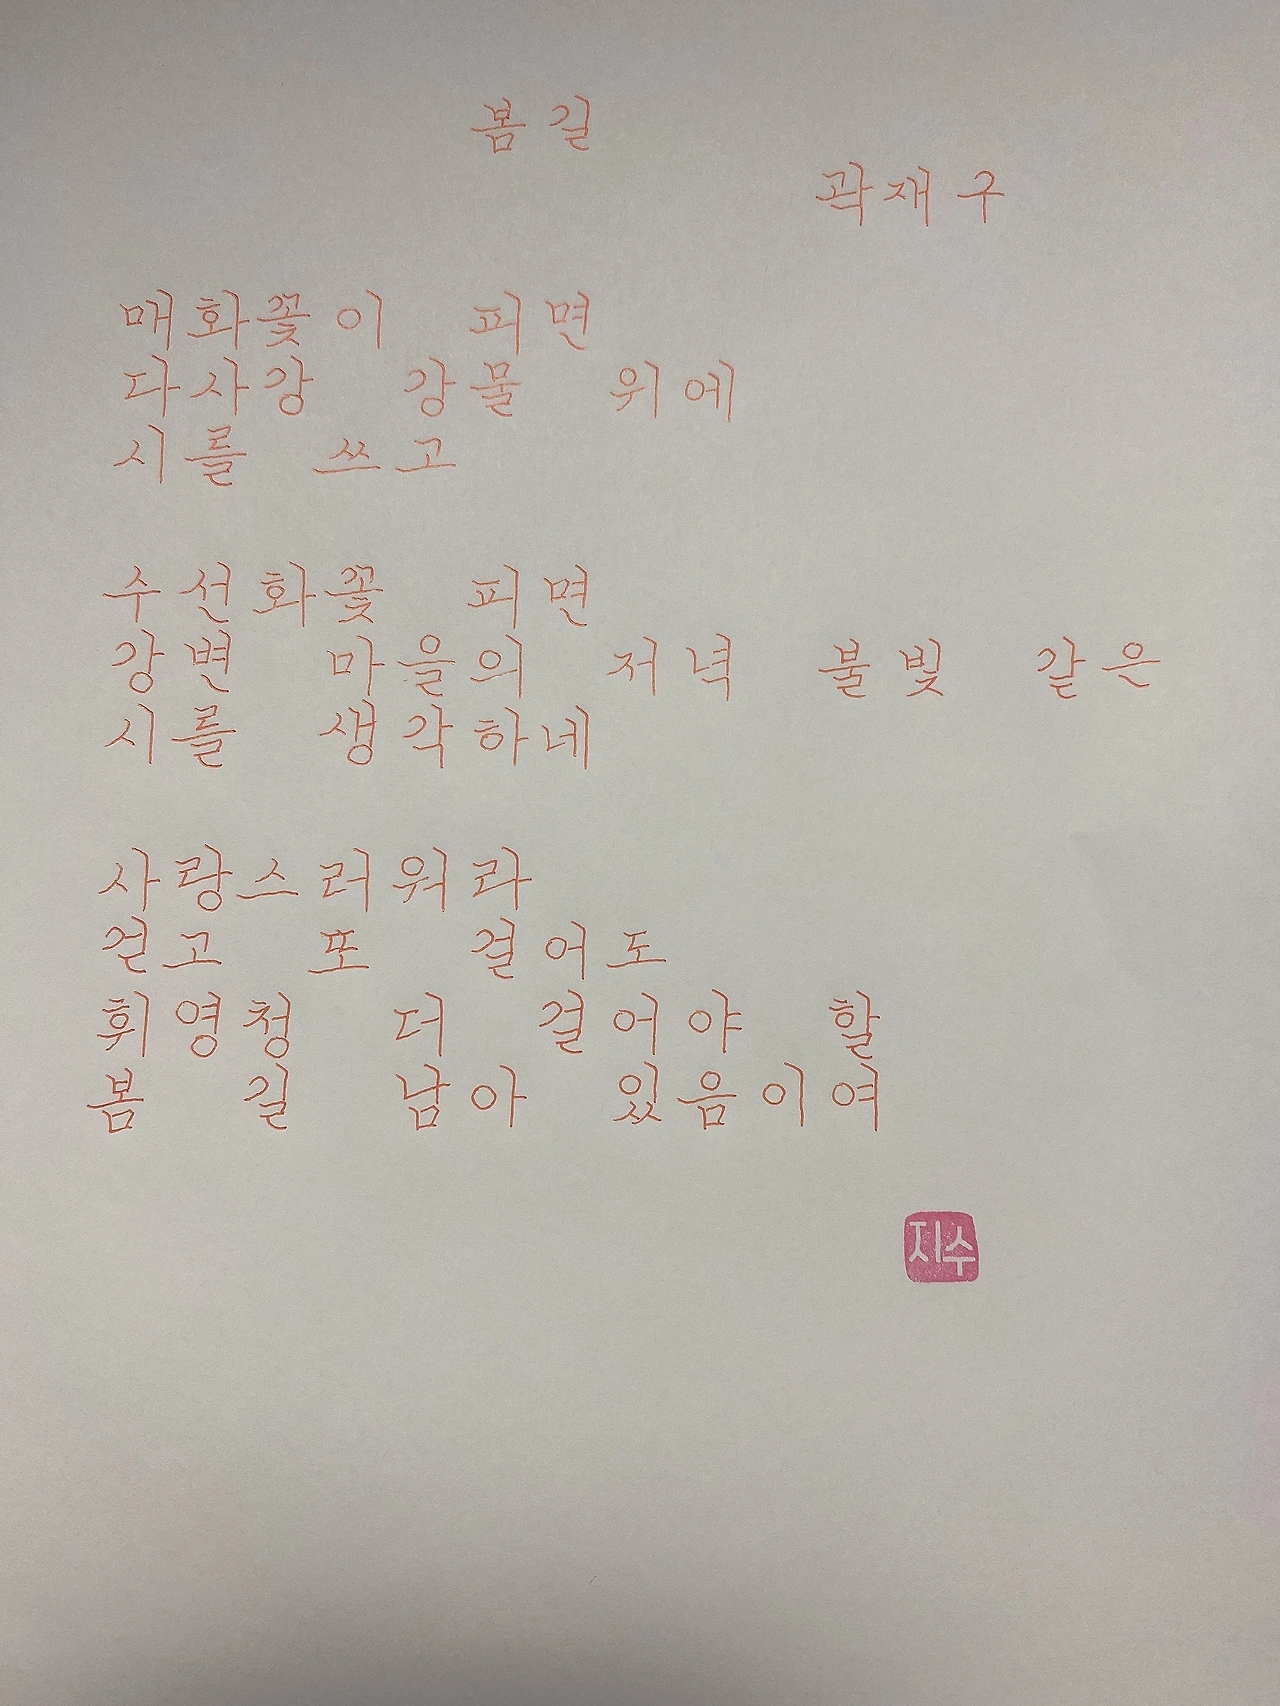 봄길
곽재구
매화꽃이 피면
다사강 강물 위에
시를 쓰고
수선화꽃 피면
강변 마을의 저녁 불빛 같은
시를 생각하네
사랑스러워라
걷고 또 걸어도
휘영청 더 걸어야 할
봄 길 남아 있음이여
지수